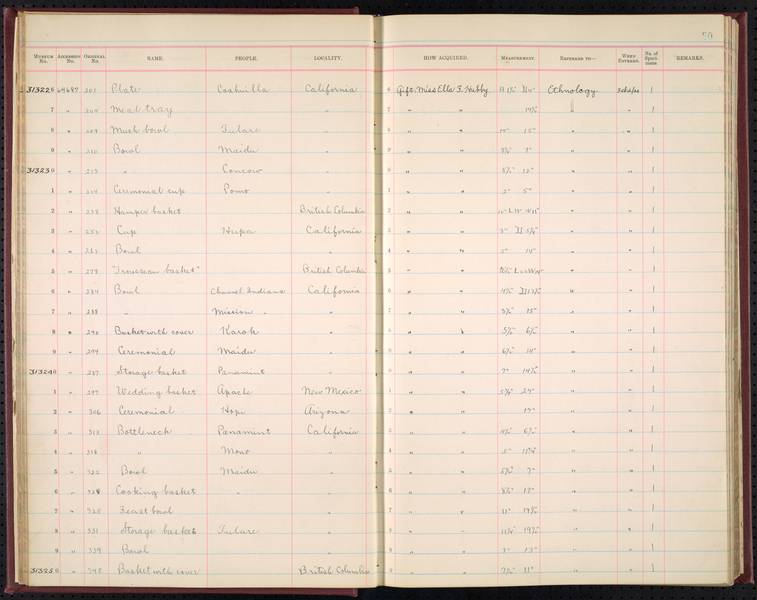 50
MUSEUM No. ACCESSION No. ORIGINAL No. NAME. PEOPLE. LOCALITY. HOW ACQUIRED. MEASUREMENT. REFERRED TO— WHEN ENTERED. No. of Specimens. REMARKS.
313226 69687 201 Plate Coahuilla California 6 Gift, Miss Ella F. Hubby Ethnology 1
7 " 204 Meal tray " 7 " " " " 1
8 " 209 Mush bowl Tulare " 8 " " 14" 15" " " 1
9 " 210 Bowl Maidu " 9 " " " " 1
313230 " 213 " Concow " 0 " " 12" " " 1
1 " 214 Ceremonial cup Pomo " 1 " " 2" 5" " " 1
2 " 238 Hamper basket British Columbia 2 " " " " 1
3 " 252 Cup Hupa California 3 " " " " 1
4 " 262 Bowl " 4 " " 14" " " 1
5 " 279 "Trousseau basket" British Columbia 5 " " " " 1
6 " 284 Bowl Channel Indians California 6 " " " " 1
7 " 288 " Mission " " 7 " " 15" " " 1
8 " 290 Basket with cover Karok " 8 " " " " 1
9 " 294 Ceremonial Maidu " 9 " " 14" " " 1
313240 " 287 Storage basket Panamint " 0 " " 7" " " 1
1 " 297 Wedding basket Apache New Mexico 1 " " 24" " " 1
2 " 306 Ceremonial Hopi Arizona 2 " " " " 1
3 " 313 Bottleneck Panamint California 3 " " " " 1
4 " 318 " Mono " 4 " " 5" " " 1
5 " 322 Bowl Maidu " 5 " " 7" " " 1
6 " 324 Cooking basket " " 6 " " 17" " " 1
7 " 325 Feast bowl " 7 " " 11" " " 1
8 " 331 Storage basket Tulare " 8 " " " " 1
9 " 339 Bowl " 9 " " 7" 13" " " 1
313250 " 345 Basket with cover British Columbia 0 " " 11" " " 1